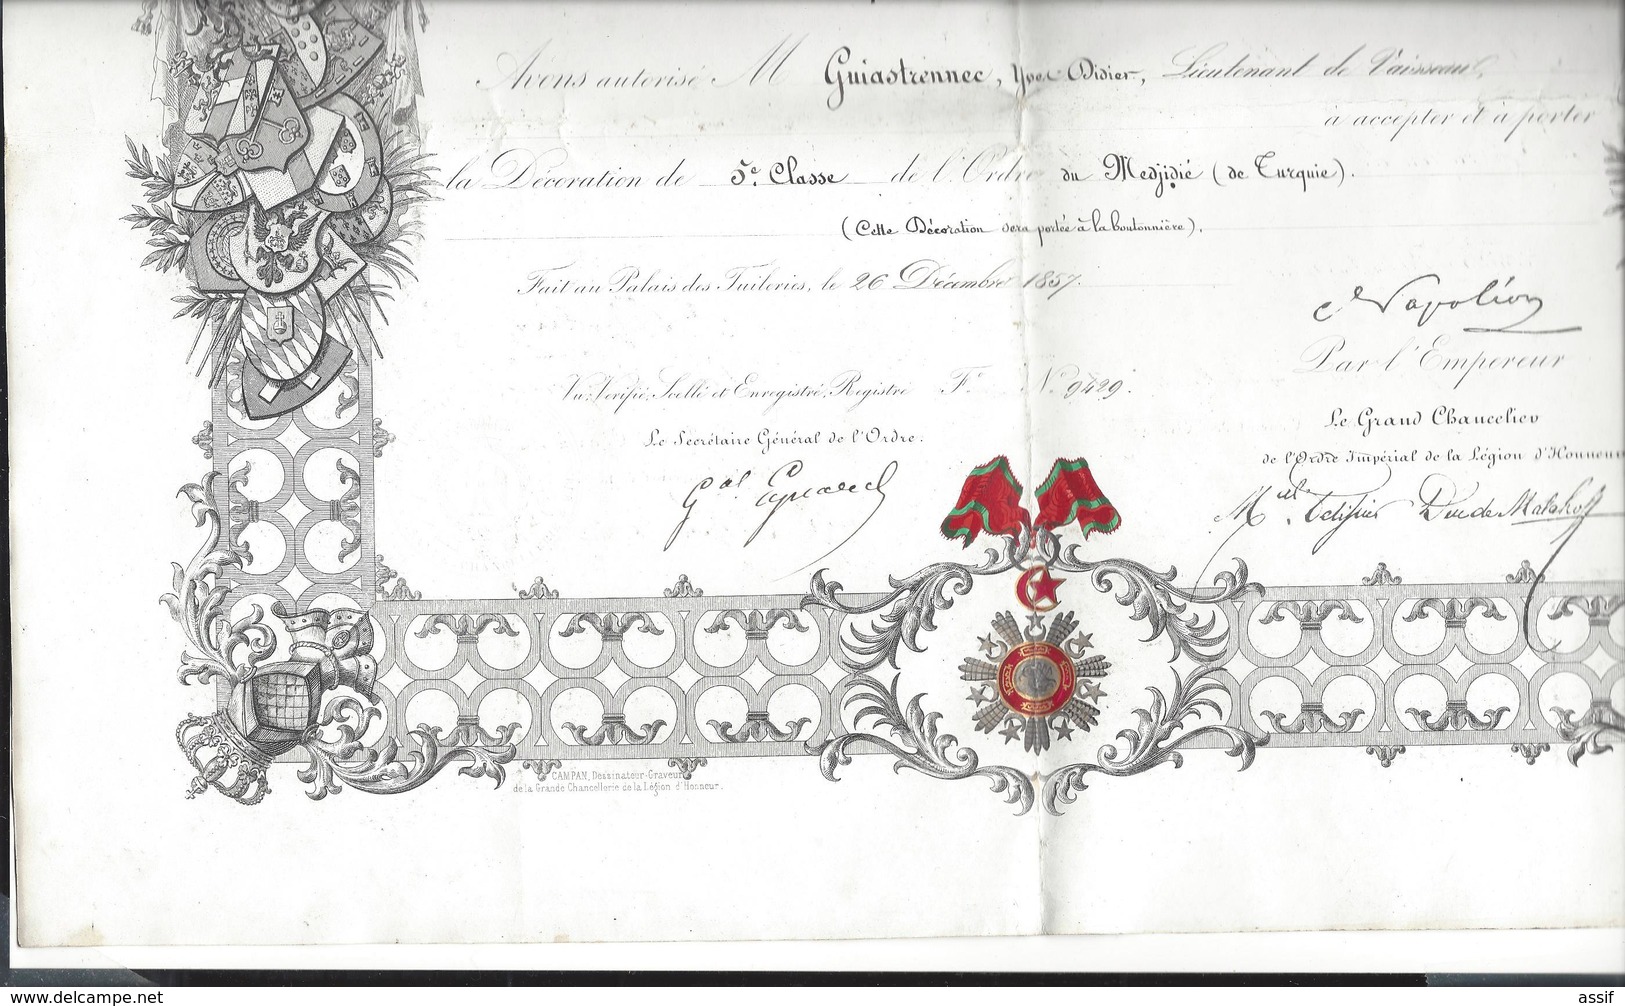 Avons autorisé M Guiastrennec, Yves Didier, Lieutenant de Vaisseau,
à accepter et à porter
la Décoration de 5e. Classe de l'Ordre du Medjidié (de Turquie).
(Cette Décoration sera portée à la boutonnière).
Fait au Palais des Tuileries, le 26 Décembre 1857.
Napoléon
Par l'Empereur
Vu, Vérifié, Scellé et Enregistré, Registre F. N. 9429.
Le Grand Chancelier
Le Secrétaire Général de l'Ordre.
de l'Ordre Impérial de la Légion d'Honneur
Gal Eynard
Mal. Pelissier Duc de Malakoff
CAMPAN, Dessinateur-Graveur
de la Grande Chancellerie de la Légion d'Honneur.
www.delcampe.net
assif